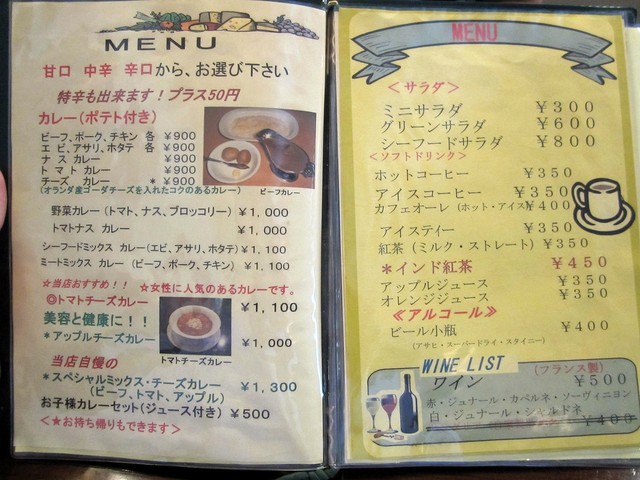 MENU
甘口 中辛 辛口から、お選び下さい
特辛も出来ます！プラス50円
カレー（ポテト付き）
ビーフ、ポーク、チキン 各 ￥900
エビ、アサリ、ホタテ 各 ￥900
ナス カレー ￥900
トマト カレー ￥900
チーズ カレー ＊￥900
（オランダ産ゴーダチーズを入れたコクのあるカレー）
ビーフカレー
野菜カレー（トマト、ナス、ブロッコリー）￥1,000
トマトナス カレー ￥1,000
シーフードミックス カレー（エビ、アサリ、ホタテ）￥1,100
ミートミックス カレー（ビーフ、ポーク、チキン）￥1,100
☆当店おすすめ！！ ☆女性に人気のあるカレーです。
◎トマトチーズカレー ￥1,100
美容と健康に！！
＊アップルチーズカレー ￥1,000
トマトチーズカレー
当店自慢の
＊スペシャルミックス・チーズカレー ￥1,300
（ビーフ、トマト、アップル）
お子様カレーセット（ジュース付き）￥500
＜★お持ち帰りもできます＞
MENU
＜サラダ＞
ミニサラダ ￥300
グリーンサラダ ￥600
シーフードサラダ ￥800
＜ソフトドリンク＞
ホットコーヒー ￥350
アイスコーヒー ￥350
カフェオーレ（ホット・アイス）￥400
アイスティー ￥350
紅茶（ミルク・ストレート）￥350
＊インド紅茶 ￥450
アップルジュース ￥350
オレンジジュース ￥350
≪アルコール≫
ビール小瓶 ￥400
（アサヒ・スーパードライ・スタイニー）
WINE LIST
（フランス製）
ワイン ￥500
赤・ジュナール・カベルネ・ソーヴィニヨン
白・ジュナール・シャルドネ
￥400